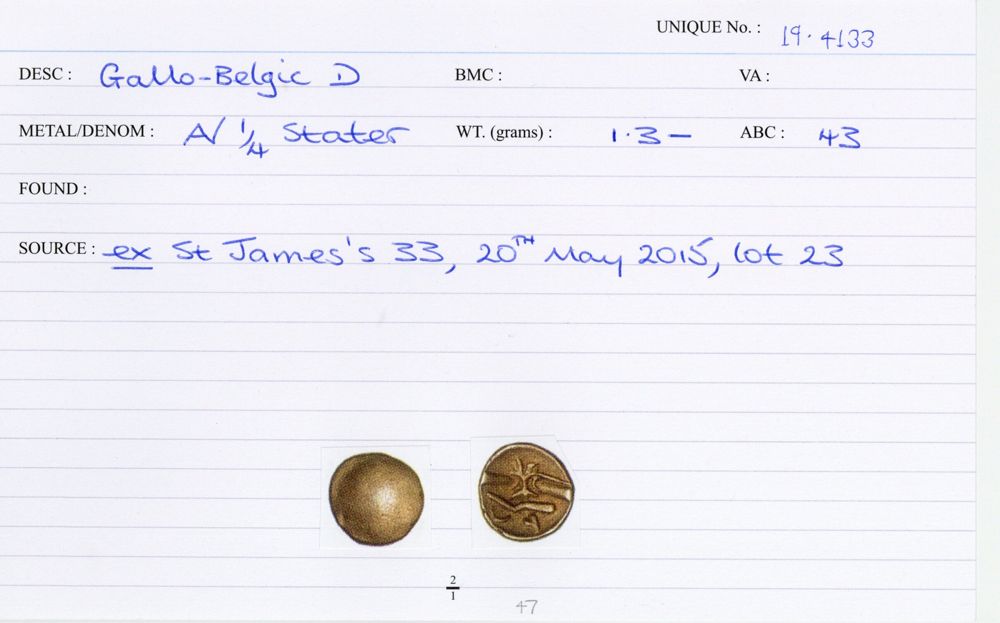 UNIQUE No. : 19.4133
DESC : Gallo-Belgic D BMC : VA :
METAL/DENOM : A/ 1/4 Stater WT. (grams) : 1.3- ABC : 43
FOUND :
SOURCE : ex St James's 33, 20TH May 2015, lot 23
2
1
47